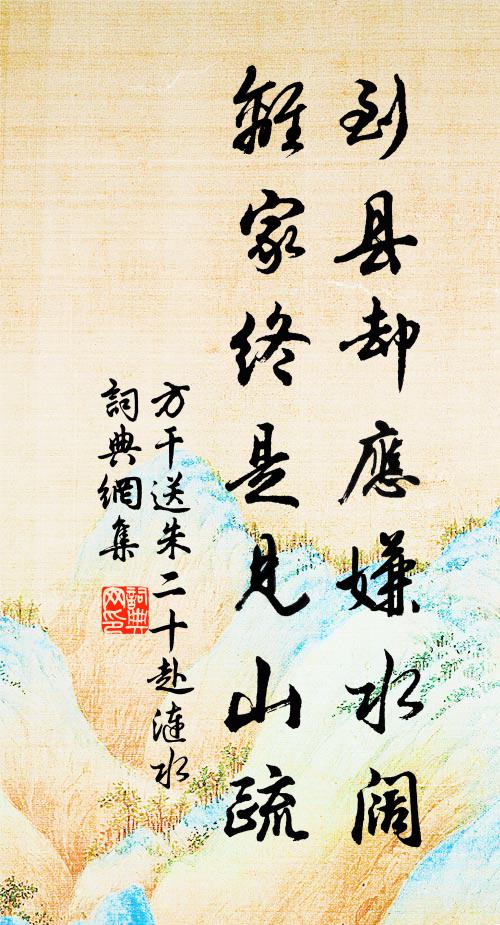 到县却應嫌水阔
離家終是見山疏
方干送朱二十赴漣水
詞典網集
詞典网印